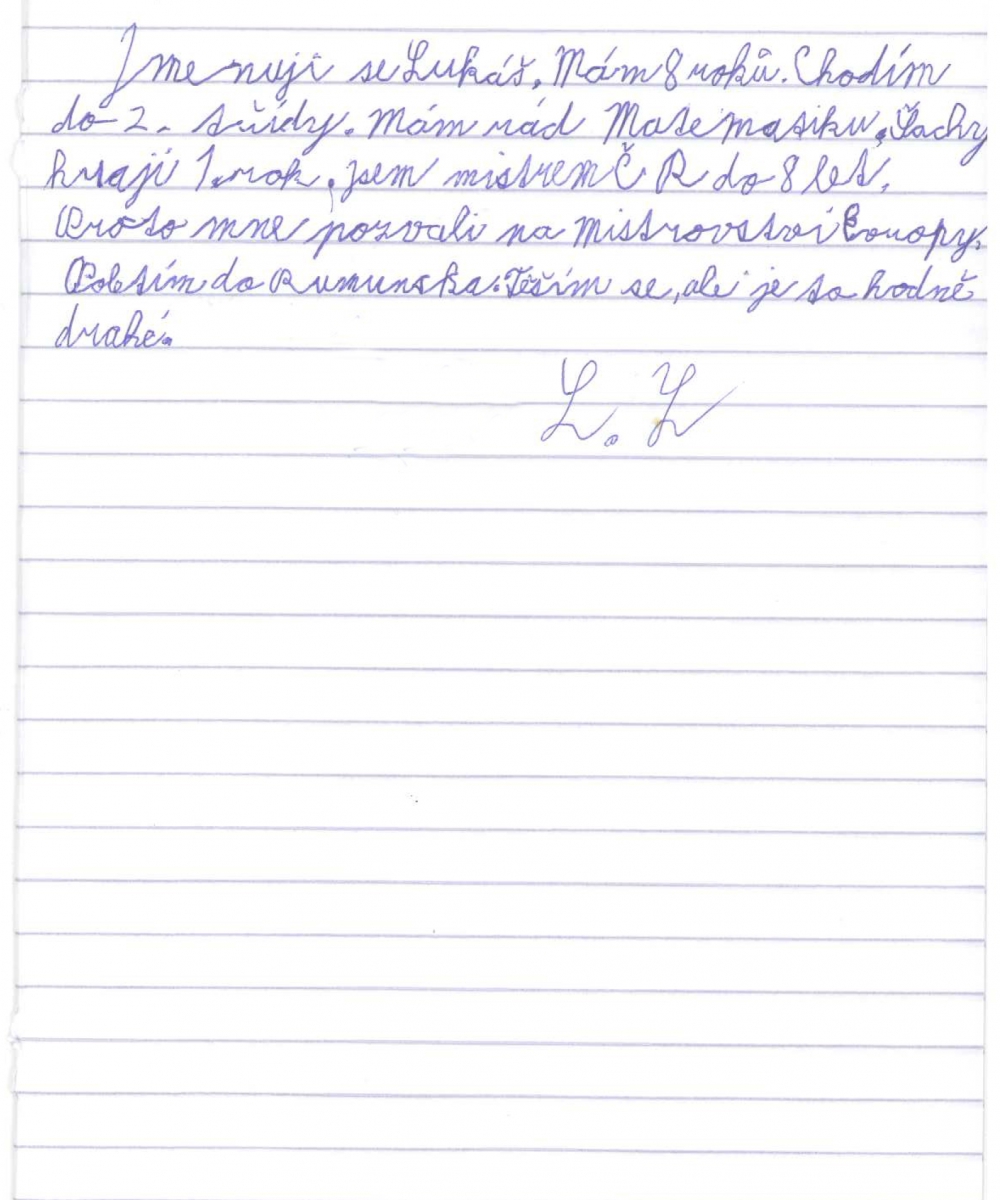 Jmenuji se Lukáš, Mám 8 roků. Chodím
do 2. třídy. Mám rád Matematiku. Šachy
hraji 1.rok, jsem mistrem Č R do 8 let.
Proto mne pozvali na Mistrovství Evropy.
Poletím do Rumunska. Těším se, ale je to hodně
drahé.
L. L